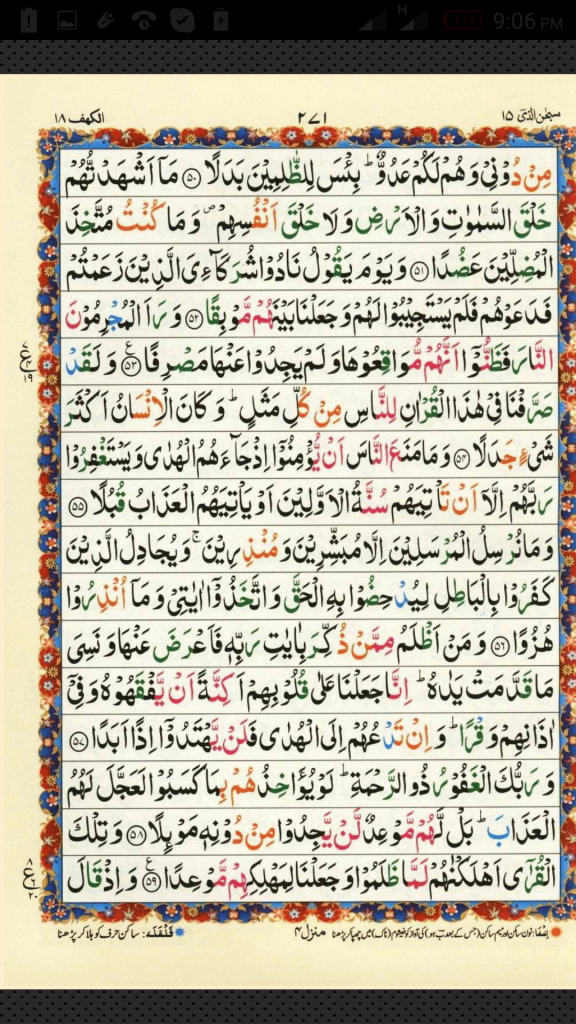 H 11% 9:06 PM
سبحٰن الذی ١٥ ٢٧١ الکهف ١٨
مِنْ دُوْنِیْ وَهُمْ لَكُمْ عَدُوٌّ ؕ بِئْسَ لِلظّٰلِمِیْنَ بَدَلًا ﴿۵۰﴾ مَاۤ اَشْهَدْتُّهُمْ
خَلْقَ السَّمٰوٰتِ وَالْاَرْضِ وَلَا خَلْقَ اَنْفُسِهِمْ ۪ وَمَا كُنْتُ مُتَّخِذَ
الْمُضِلِّیْنَ عَضُدًا ﴿۵۱﴾ وَیَوْمَ یَقُوْلُ نَادُوْا شُرَكَآءِیَ الَّذِیْنَ زَعَمْتُمْ
فَدَعَوْهُمْ فَلَمْ یَسْتَجِیْبُوْا لَهُمْ وَجَعَلْنَا بَیْنَهُمْ مَّوْبِقًا ﴿۵۲﴾ وَرَاَ الْمُجْرِمُوْنَ
النَّارَ فَظَنُّوْۤا اَنَّهُمْ مُّوَاقِعُوْهَا وَلَمْ یَجِدُوْا عَنْهَا مَصْرِفًا ﴿۵۳﴾ ع وَلَقَدْ
صَرَّفْنَا فِیْ هٰذَا الْقُرْاٰنِ لِلنَّاسِ مِنْ كُلِّ مَثَلٍ ؕ وَكَانَ الْاِنْسَانُ اَكْثَرَ
شَیْءٍ جَدَلًا ﴿۵۴﴾ وَمَا مَنَعَ النَّاسَ اَنْ یُّؤْمِنُوْۤا اِذْ جَآءَهُمُ الْهُدٰی وَیَسْتَغْفِرُوْا
رَبَّهُمْ اِلَّاۤ اَنْ تَاْتِیَهُمْ سُنَّةُ الْاَوَّلِیْنَ اَوْ یَاْتِیَهُمُ الْعَذَابُ قُبُلًا ﴿۵۵﴾
وَمَا نُرْسِلُ الْمُرْسَلِیْنَ اِلَّا مُبَشِّرِیْنَ وَمُنْذِرِیْنَ ۚ وَیُجَادِلُ الَّذِیْنَ
كَفَرُوْا بِالْبَاطِلِ لِیُدْحِضُوْا بِهِ الْحَقَّ وَاتَّخَذُوْۤا اٰیٰتِیْ وَمَاۤ اُنْذِرُوْا
هُزُوًا ﴿۵۶﴾ وَمَنْ اَظْلَمُ مِمَّنْ ذُكِّرَ بِاٰیٰتِ رَبِّهٖ فَاَعْرَضَ عَنْهَا وَنَسِیَ
مَا قَدَّمَتْ یَدٰهُ ؕ اِنَّا جَعَلْنَا عَلٰی قُلُوْبِهِمْ اَكِنَّةً اَنْ یَّفْقَهُوْهُ وَفِیْۤ
اٰذَانِهِمْ وَقْرًا ؕ وَاِنْ تَدْعُهُمْ اِلَی الْهُدٰی فَلَنْ یَّهْتَدُوْۤا اِذًا اَبَدًا ﴿۵۷﴾
وَرَبُّكَ الْغَفُوْرُ ذُو الرَّحْمَةِ ؕ لَوْ یُؤَاخِذُهُمْ بِمَا كَسَبُوْا لَعَجَّلَ لَهُمُ
الْعَذَابَ ؕ بَلْ لَّهُمْ مَّوْعِدٌ لَّنْ یَّجِدُوْا مِنْ دُوْنِهٖ مَوْئِلًا ﴿۵۸﴾ وَتِلْكَ
الْقُرٰۤی اَهْلَكْنٰهُمْ لَمَّا ظَلَمُوْا وَجَعَلْنَا لِمَهْلِكِهِمْ مَّوْعِدًا ﴿۵۹﴾ ع وَاِذْ قَالَ
اِخفا: نون ساکن اور میم ساکن (جس کے بعد ب ہو) کی آواز کو خیشوم (ناک) میں چھپا کر پڑھنا منزل ۴ قَلْقَلَہ: ساکن حرف کو ہلا کر پڑھنا